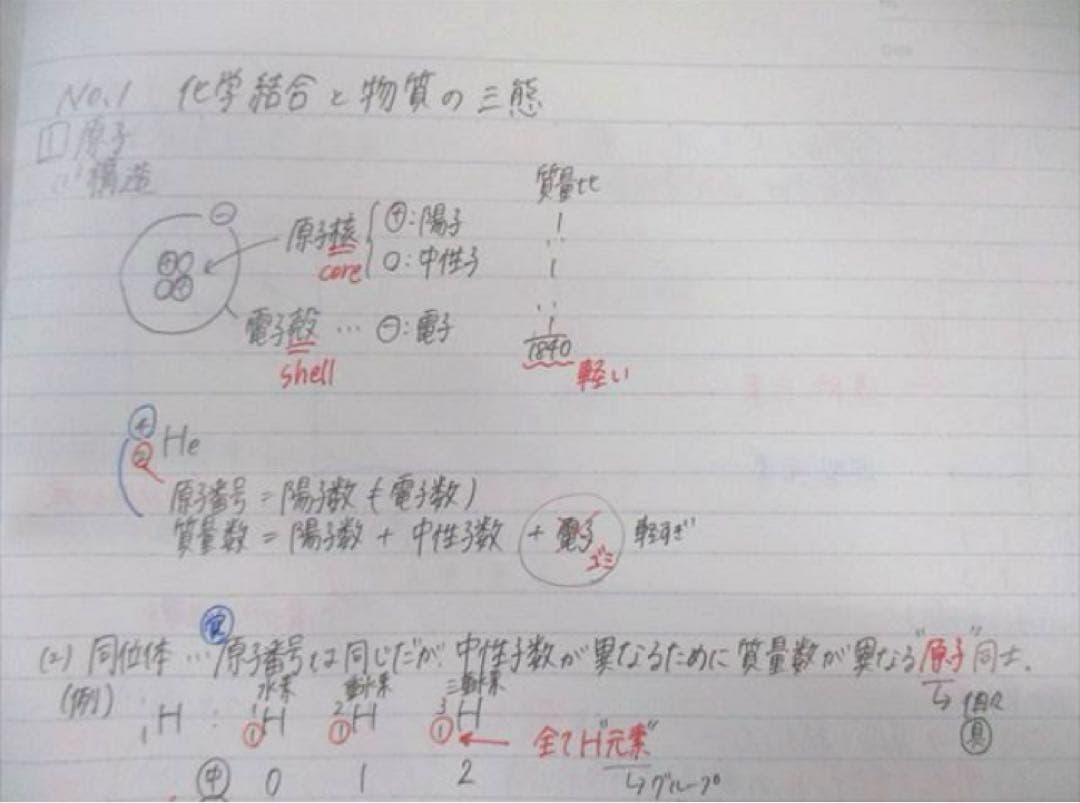 No.1 化学結合と物質の三態
1 原子
(1) 構造
質量比
⊖
原子核 ⊕:陽子 1
core ○:中性子 1
電子殻 … ⊖:電子 1/1840
shell 軽い
④
② He
原子番号 = 陽子数 (=電子数)
質量数 = 陽子数 + 中性子数 + 電子 軽すぎ
ゴミ
(2) 同位体 … 原子番号は同じだが、中性子数が異なるために質量数が異なる"原子"同士.
(例) 水素 重水素 三重水素 ↳個々
₁H : ¹①H ²①H ³①H ← 全てH"元素" 具
㊥ 0 1 2 ↳グループ